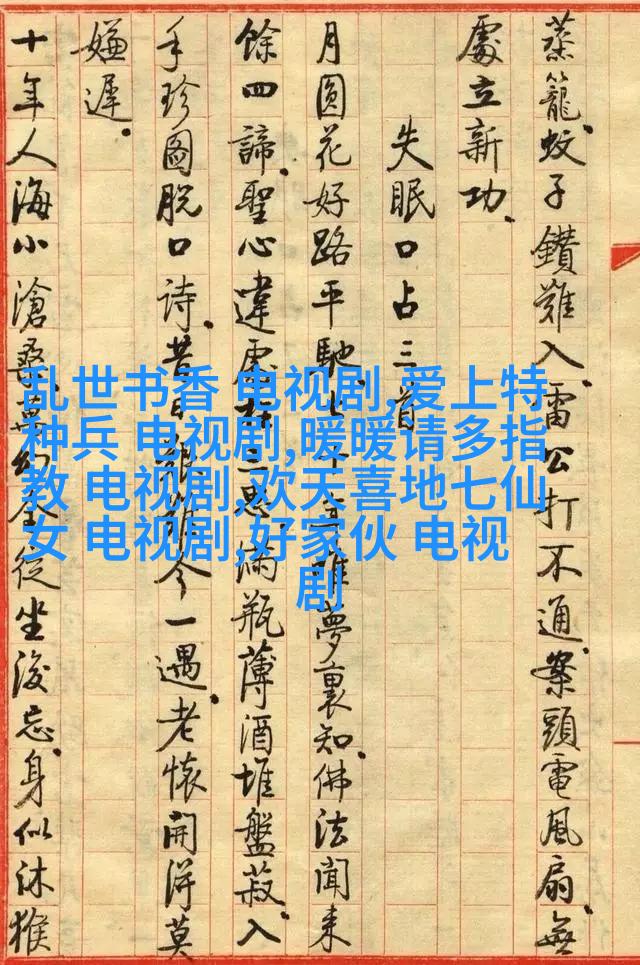 蒸籠.蚊子鑽難入.雷公打不通.案頭電風扇.無
處立新功.
失眠口占三首
月圓花好路平馳.夢裏知.佛法聞來
餘四諦.聖心違處三思滿瓶薄酒堆盤菽.入
手珍圖脫口詩.昔日艱難今一遇.老懷開得莫
嫌遲.
十年人海小滄桑萬幻全從坐後忘.身似沐猴
乱世书香 电视剧,爱上特
种兵 电视剧,暖暖请多指
教 电视剧,欢天喜地七仙
女 电视剧,好家伙 电视
剧